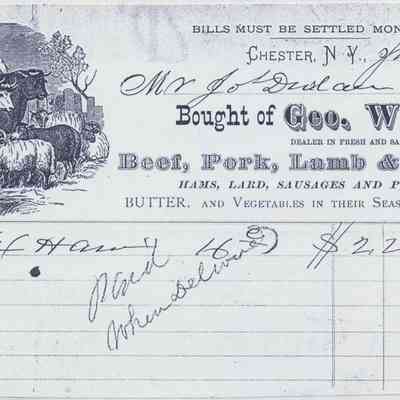 BILLS MUST BE SETTLED MON
CHESTER, N. Y.,
Mr Jos Durlan
Bought of Geo. W
DEALER IN FRESH AND SA
Beef, Pork, Lamb &
HAMS, LARD, SAUSAGES AND P
BUTTER, AND VEGETABLES IN THEIR SEAS
Ham $2.2
Paid
When Delivered